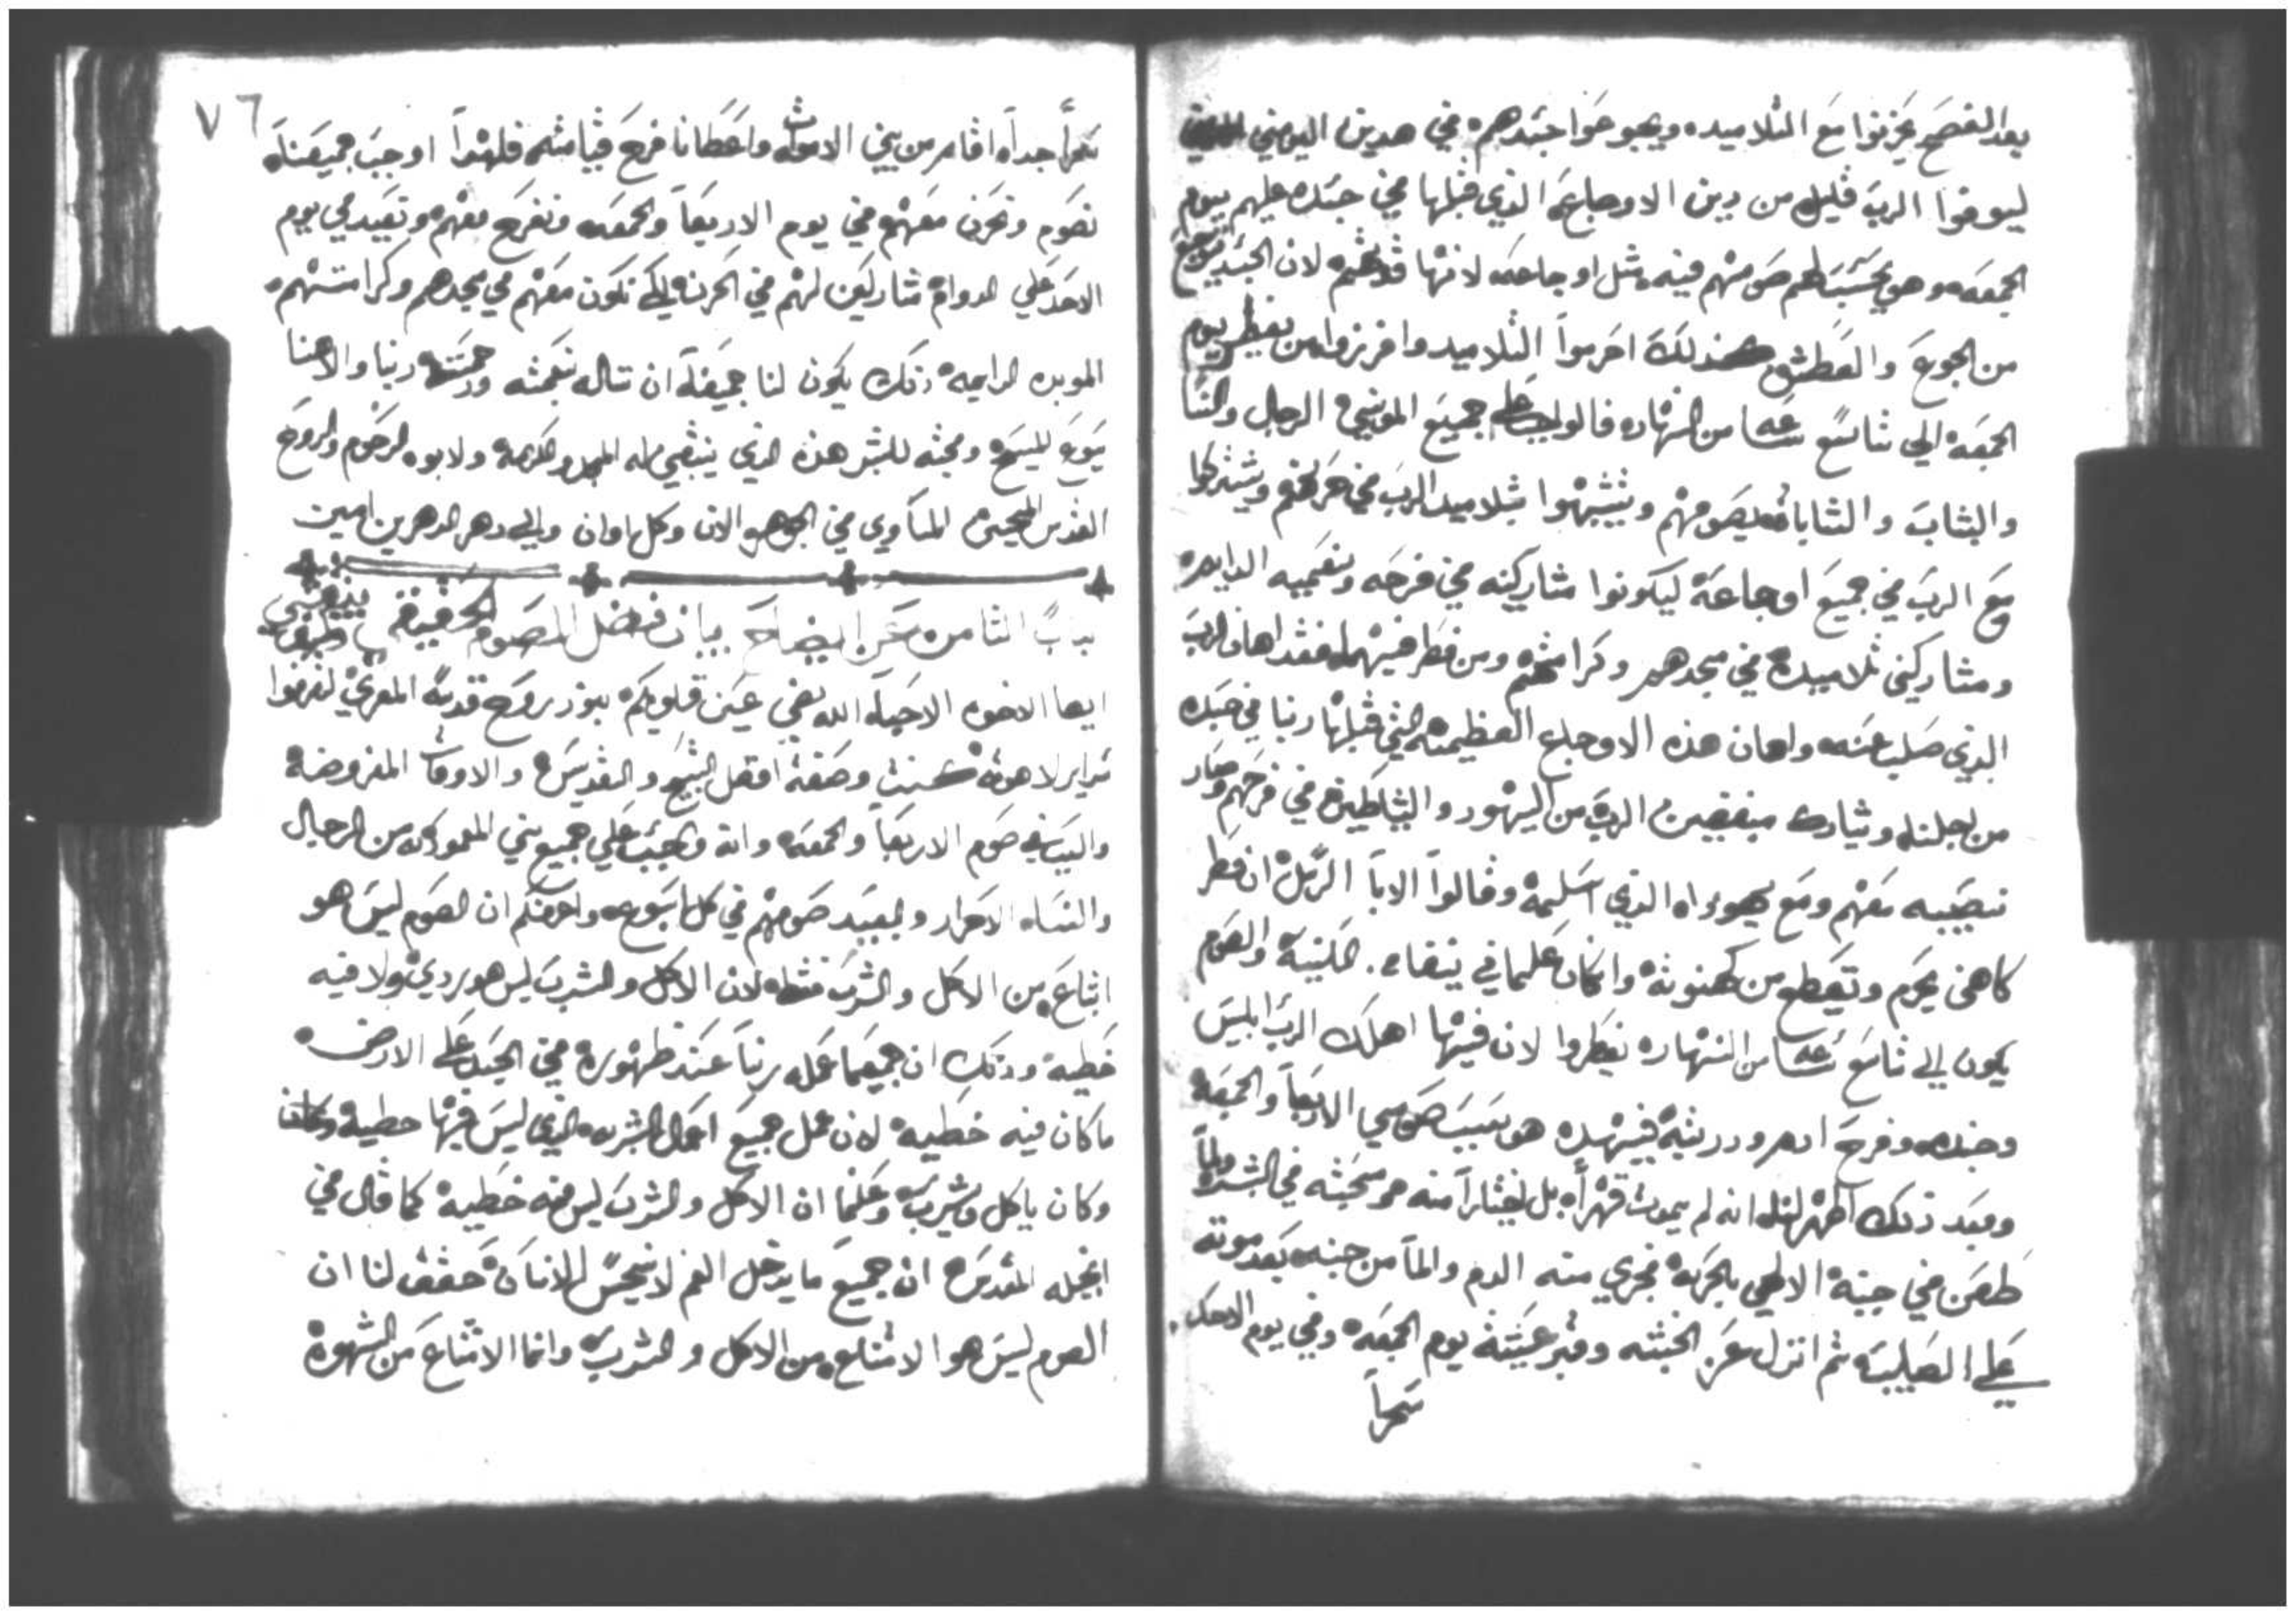 بعد الفصح يحزنوا مع التلاميده ويجوعوا جسدهم في هدين اليومين
ليوفوا الرب قليل من دين الاوجاع الذي قبلها في جسده عليهم يوم
الجمعه وهو يحسب لهم صومهم فيه مثل اوجاعه لانها لان الجسد يتوجع
من الجوع والعطش كذلك احرموا التلاميد وافرزوا من يفطر يوم
الجمعه الي تاسع ساعه من النهاره فالواجب علي جميع المومنين الرجال والنسا
والشاب والشابات بصومهم ويتشبهوا بتلاميد الرب في حزنهم ويشتركوا
مع الرب في جميع اوجاعه ليكونوا مشاركينه في فرحه ونعيمه الدايمه
ومشاركين تلاميده في مجدهم وكرامتهم ومن فطر فيهما فقد اهان الرب
الذي صلب عنه واهان هذه الاوجاع العظيمه التي قبلها ربنا في جسده
من اجلنا وشارك مبغضين الرب من اليهود والشياطين في فرحهم وصار
نصيبه معهم ومع يهوداه الذي اسلمه وقالوا الابا الرسل ان فطر
كاهن يحرم وتقطع من كهنوته وان كان علماني ينفا من الكنيسه والصوم
يكون الي تاسع ساعه من النهاره يفطروا لان فيها اهلك الرب ابليس
وجنده وفرح ادم وذريته فبهذه هو سبب صومي الاربعا والجمعه
وبعد ذلك اظهر لنا انه لم يموت قهراً بل اختياراً منه ومحبته في البشر ولما
طعن في جنبه الالهي بالحربه فجري منه الدم والما من جنبه بعد موته
علي الصليب ثم انزل عن الخشبه وقبر عشية يوم الجمعه وفي يوم الاحد
سحراً
٧٦
سحراً جداً اقام من بين الاموات واعطانا فرح قيامته فلهذا اوجب جميعنا
نصوم ونحزن معهم في يوم الاربعا والجمعه ونفرح معهم ونعيد في يوم
الاحد علي الدوام مشاركين لهم في الحزن لكي نكون معهم في مجدهم وكرامتهم
الموبده الدايمه ذلك يكون لنا جميعنا ان نناله بنعمته ورحمته ربنا والاهنا
يسوع المسيح ومحبته للبشر هذه الذي ينبغي له المجد والكرامه ولابوه الرحوم والروح
القدس المحيي المساوي في الجوهر الان وكل اوان والي دهر الدهرين امين
باب الثامن عن ايضاح بيان فضل الصوم الحقيقي
ايها الاخوه الاحبا الله يضي عين قلوبكم بنور روح قدسه المعزي لتعرفوا
سراير لاهوته كنت وصفة افضل التسبيح والتقديس والاوقات المفروضه
والبياض صوم الاربعا والجمعه وانه واجب علي جميع بني المعموديه من الرجال
والنساء الاحرار والعبيد صومهم في كل اسبوع واعرفكم ان الصوم ليس هو
امتناع من الاكل والشرب فقط لان الاكل والشرب ليس هو ردي ولا فيه
خطيه وذلك ان جميع ما عمله ربنا عند ظهوره في الجسد علي الارض
ما كان فيه خطيه لان عمل جميع اعمال البشريه الذي ليس فيها خطيه وكان
وكان ياكل ويشرب وعلمنا ان الاكل والشرب ليس فيه خطيه كما قال في
انجيله المقدس ان جميع ما يدخل الفم لا ينجس الانسان حقق لنا ان
الصوم ليس هو الامتناع من الاكل والشرب وانما الامتناع من الشهوه